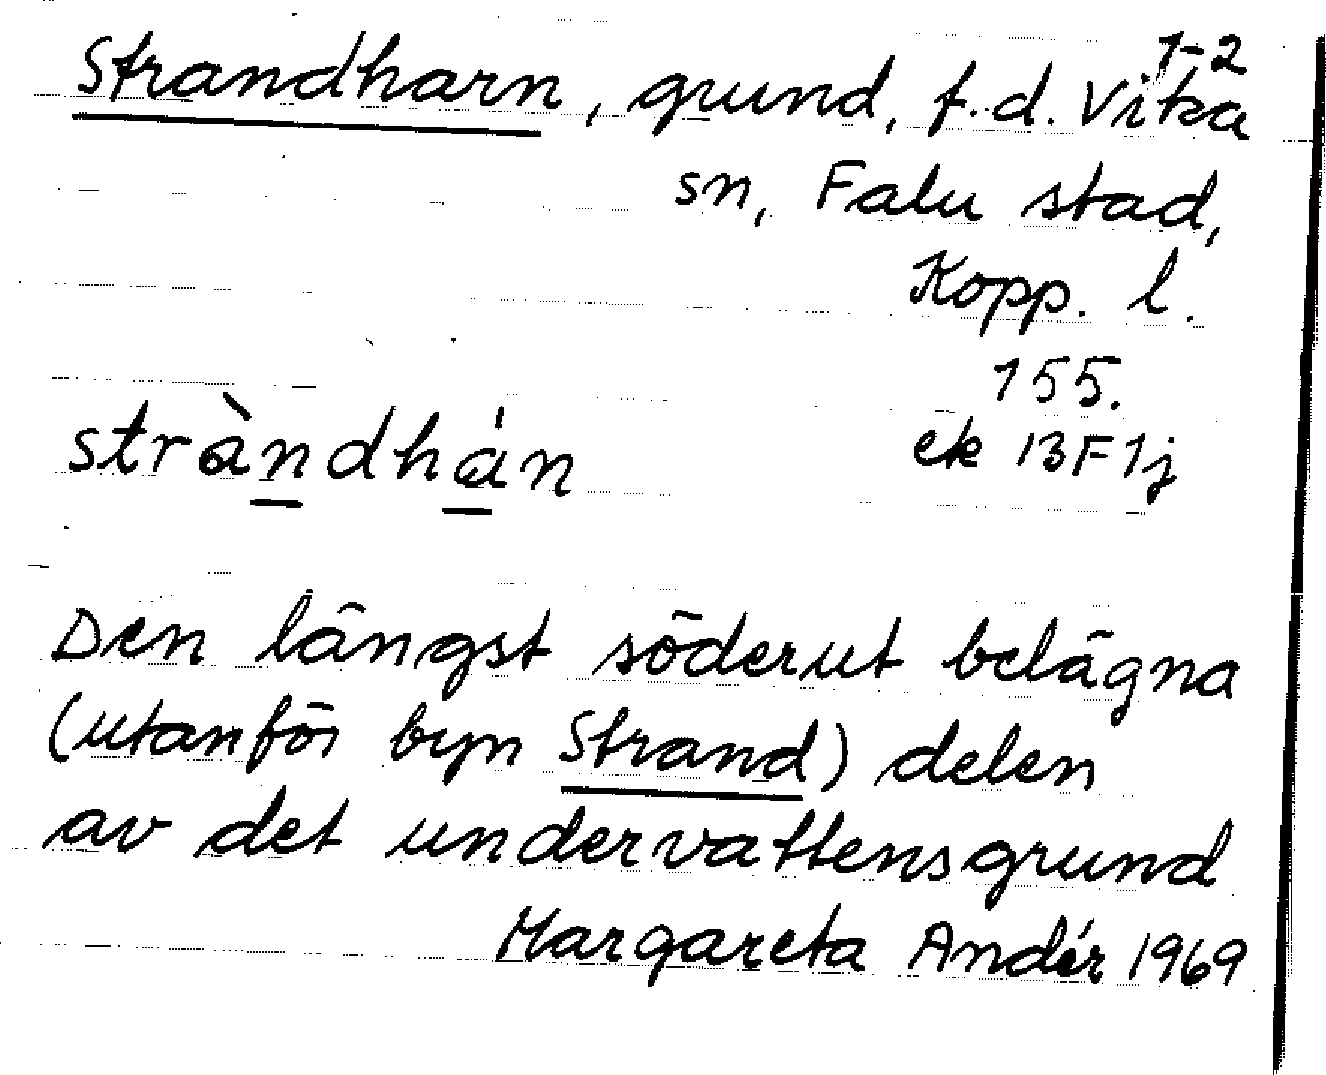 1-2
Strandharn, grund, f.d. Vika
sn, Falu stad,
Kopp. l.
155.
ek 13F1j
stràndhán
Den längst söderut belägna
(utanför byn Strand) delen
av det undervattensgrund
Margareta Andér 1969